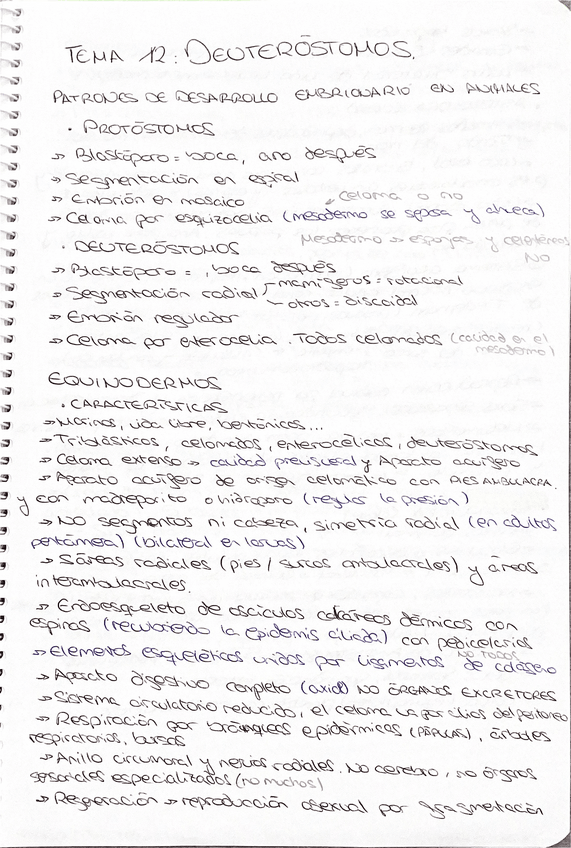 TEMA 12: DEUTERÓSTOMOS.
PATRONES DE DESARROLLO EMBRIONARIO EN ANIMALES
· PROTÓSTOMOS
→ Blastóporo = boca, ano después
→ Segmentación en espiral
→ Embrión en mosaico
celoma o no
→ Celoma por esquizocelia (mesodermo se separa y ahueca)
· DEUTERÓSTOMOS
Mesodermo → esponjas y celentéreos NO
→ Blastóporo = , boca después
mamíferos = rotacional
→ Segmentación radial
otros = discoidal
→ Embrión regulador
→ Celoma por enterocelia. Todos celomados (cavidad en el mesodermo)
EQUINODERMOS
· CARACTERÍSTICAS
→ Marinos, vida libre, bentónicos...
→ Triblásticos, celomados, enterocélicos, deuteróstomos
→ Celoma extenso → cavidad previsceral y Aparato acuífero
→ Aparato acuífero de origen celomático con PIES AMBULACRA.
y con madreporito o hidroporo (regular la presión)
→ NO segmentos ni cabeza, simetría radial (en adultos
pentámera) (bilateral en larvas)
→ 5 áreas radiales (pies / surcos ambulacrales) y áreas
interambulacrales.
→ Endoesqueleto de osículos calcáreos dérmicos con
espinas (recubriendo la epidermis ciliada) con pedicelarios
NO TODOS
→ Elementos esqueléticos unidos por ligamentos de colágeno
→ Aparato digestivo completo (axial) NO ÓRGANOS EXCRETORES
→ Sistema circulatorio reducido, el celoma va por cilios del peritoneo
→ Respiración por branquias epidérmicas (PÁPULAS), árboles
respiratorios, bursas
→ Anillo circumoral y nervios radiales. No cerebro, no órganos
sensoriales especializados (no muchos)
→ Regeneración → reproducción asexual por fragmentación